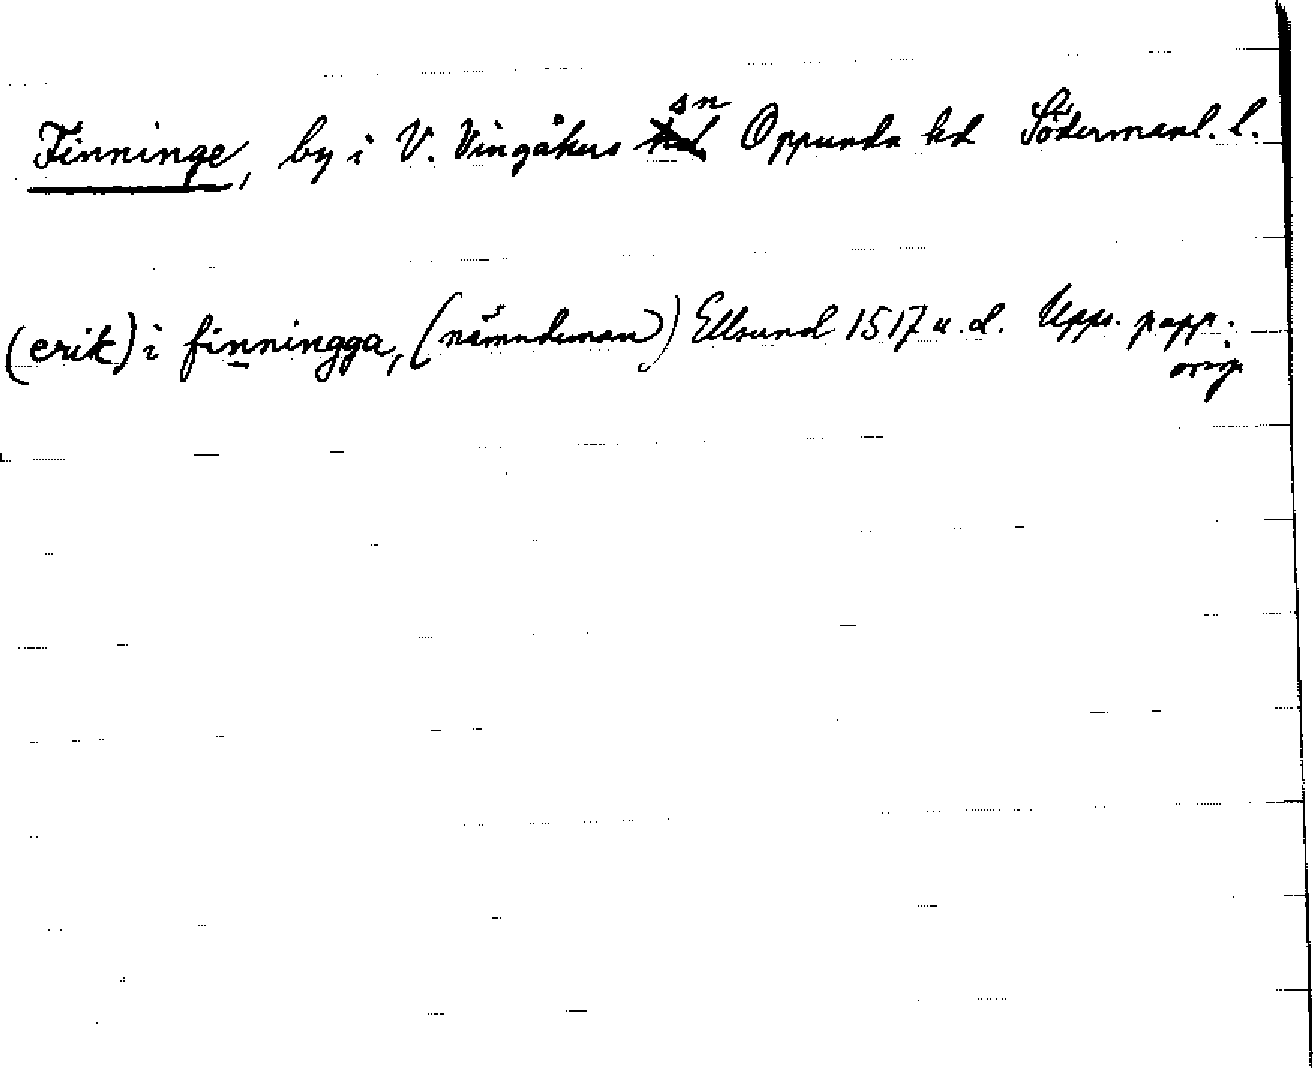 Finninge, by i V. Vingåkers sn Oppunda hd Södermanl. l.
(erik) i finningga, (nämndeman) Ellsund 1517 u. d. Upps. papp.
orig